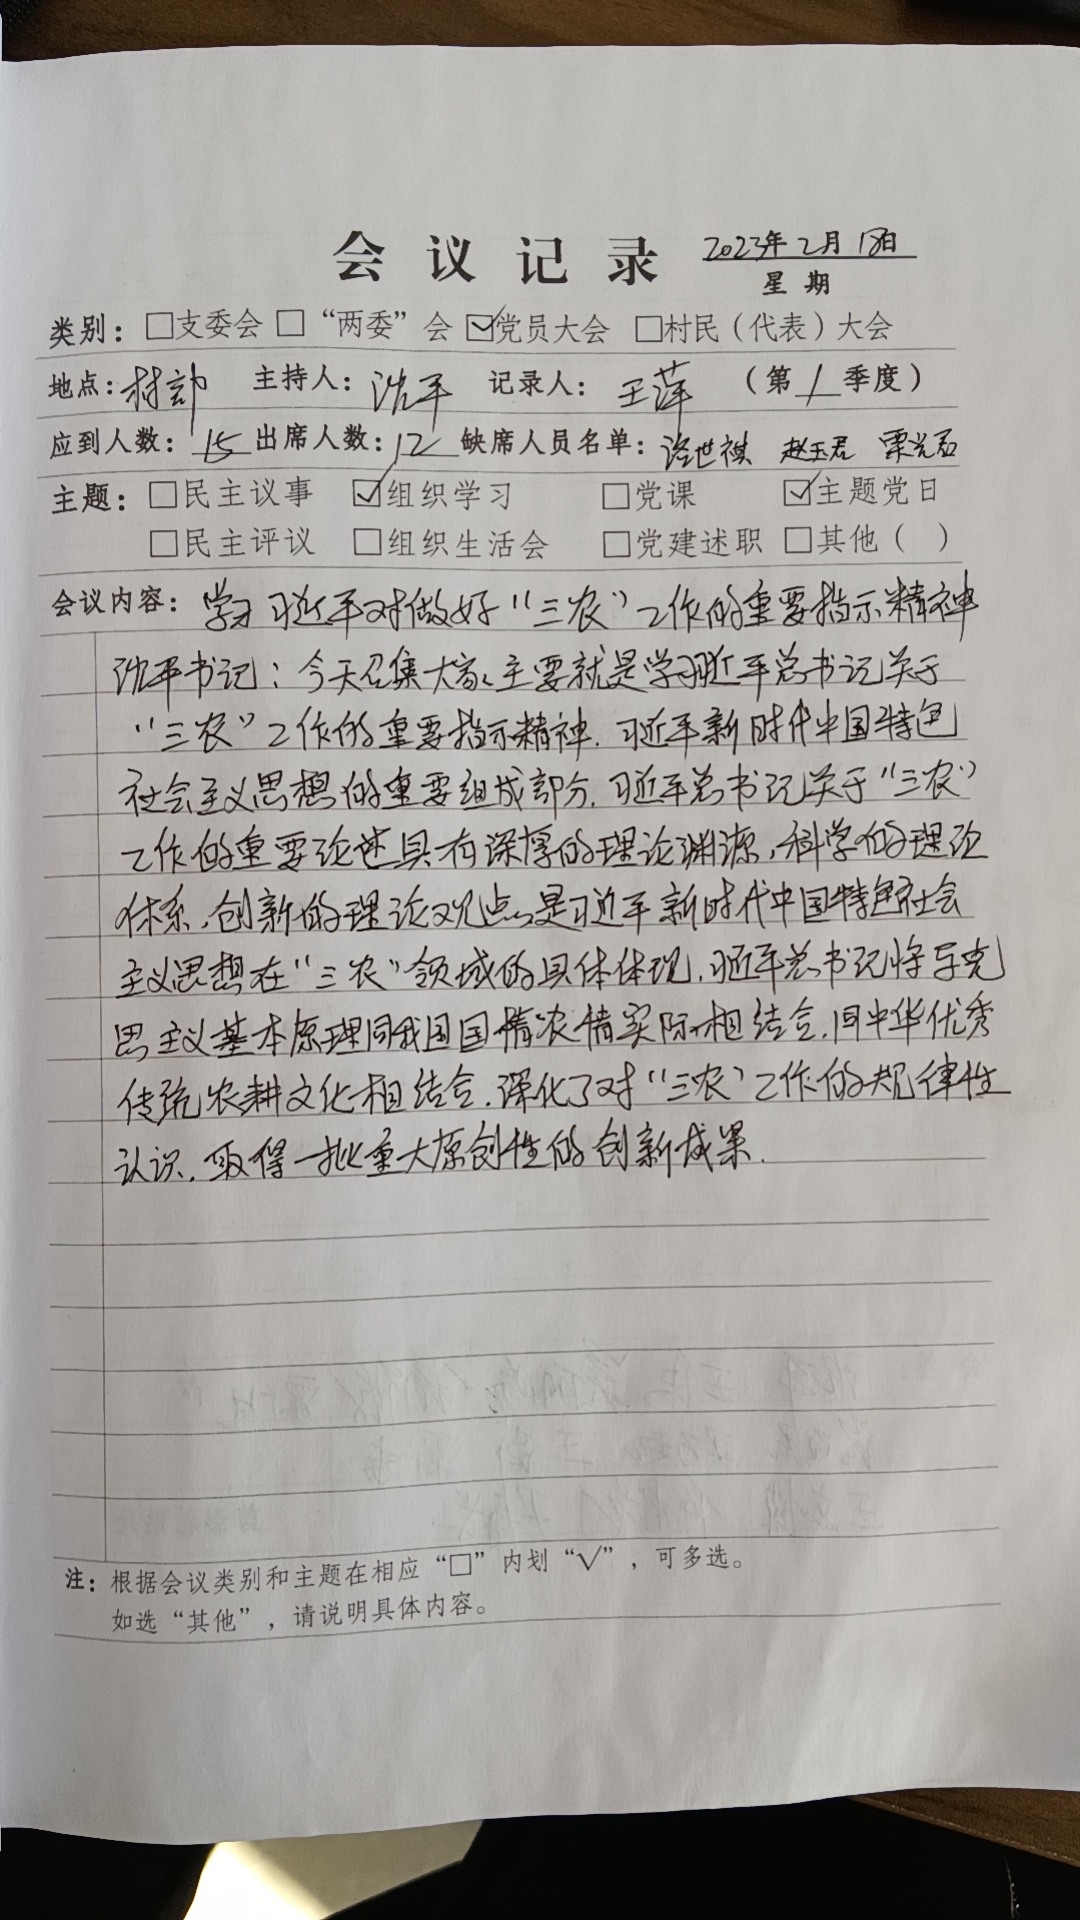 会议记录 2023年2月18日
星期
类别：□支委会 □“两委”会 ☑党员大会 □村民（代表）大会
地点：村部 主持人：沈平 记录人：王萍 （第1季度）
应到人数：15 出席人数：12 缺席人员名单：世祺 赵玉君 栗光磊
主题：□民主议事 ☑组织学习 □党课 ☑主题党日
□民主评议 □组织生活会 □党建述职 □其他（ ）
会议内容：学习习近平对做好“三农”工作的重要指示精神
沈平书记：今天召集大家、主要就是学习习近平总书记关于
“三农”工作的重要指示精神.习近平新时代中国特色
社会主义思想的重要组成部分.习近平总书记关于“三农”
工作的重要论述具有深厚的理论渊源,科学的理论
体系,创新的理论观点,是习近平新时代中国特色社会
主义思想在“三农”领域的具体体现,习近平总书记将马克
思主义基本原理同我国国情农情实际相结合.同中华优秀
传统农耕文化相结合.深化了对“三农”工作的规律性
认识.取得一批重大原创性的创新成果.
注：根据会议类别和主题在相应“□”内划“√”，可多选。
如选“其他”，请说明具体内容。